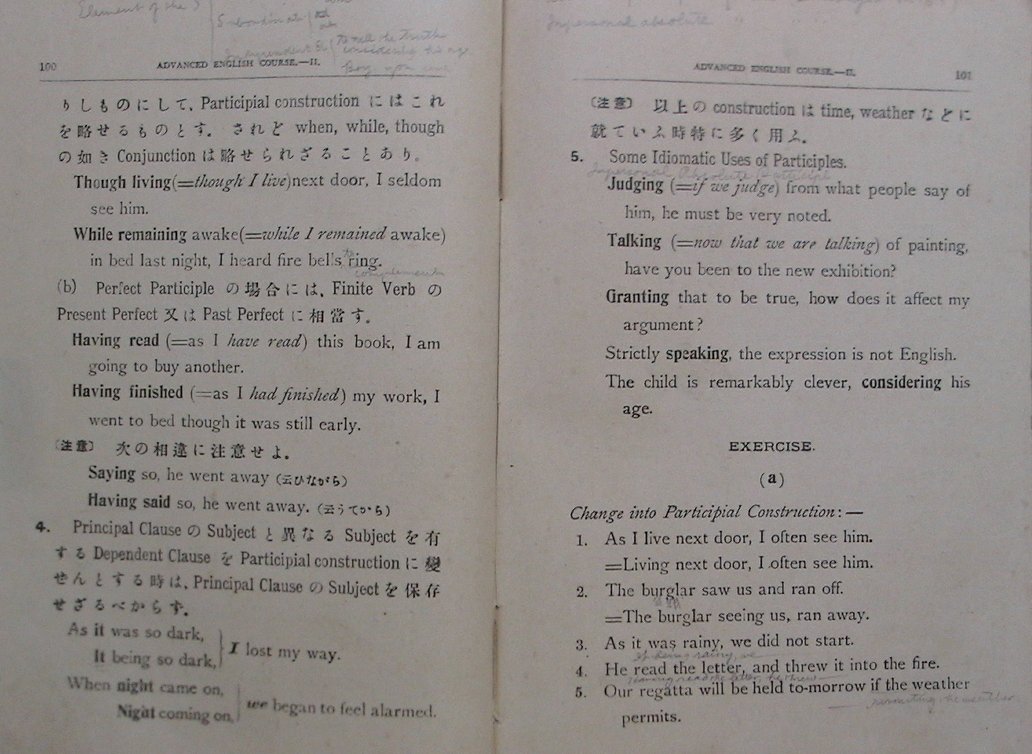 Element of the S
Subordinate
Independent El
To tell the truth
considering his age
100
ADVANCED ENGLISH COURSE.—II.
りしものにして、Participial construction にはこれ
を略せるものとす。されど when, while, though
の如き Conjunction は略せられざることあり。
Though living(=though I live)next door, I seldom
see him.
While remaining awake(=while I remained awake)
in bed last night, I heard fire bells ring.
complement
(b) Perfect Participle の場合には、Finite Verb の
Present Perfect 又は Past Perfect に相當す。
Having read (=as I have read) this book, I am
going to buy another.
Having finished (=as I had finished) my work, I
went to bed though it was still early.
〔注意〕 次の相違に注意せよ。
Saying so, he went away (云ひながら)
Having said so, he went away. (云うてから)
4. Principal Clause の Subject と異なる Subject を有
する Dependent Clause を Participial construction に變
せんとする時は、Principal Clause の Subject を保存
せざるべからず。
As it was so dark,
It being so dark,
I lost my way.
When night came on,
Night coming on,
we began to feel alarmed.
Impersonal absolute
ADVANCED ENGLISH COURSE.—II.
101
〔注意〕 以上の construction は time, weather などに
就ていふ時特に多く用ふ。
5. Some Idiomatic Uses of Participles.
Impersonal Absolute Participle
Judging (=if we judge) from what people say of
him, he must be very noted.
Talking (=now that we are talking) of painting,
have you been to the new exhibition?
Granting that to be true, how does it affect my
argument?
Strictly speaking, the expression is not English.
The child is remarkably clever, considering his
age.
EXERCISE.
(a)
Change into Participial Construction:—
1. As I live next door, I often see him.
=Living next door, I often see him.
2. The burglar saw us and ran off.
=The burglar seeing us, ran away.
3. As it was rainy, we did not start.
It being rainy, we
4. He read the letter, and threw it into the fire.
Having read the letter, he threw
5. Our regatta will be held to-morrow if the weather
permitting, the weather
permits.